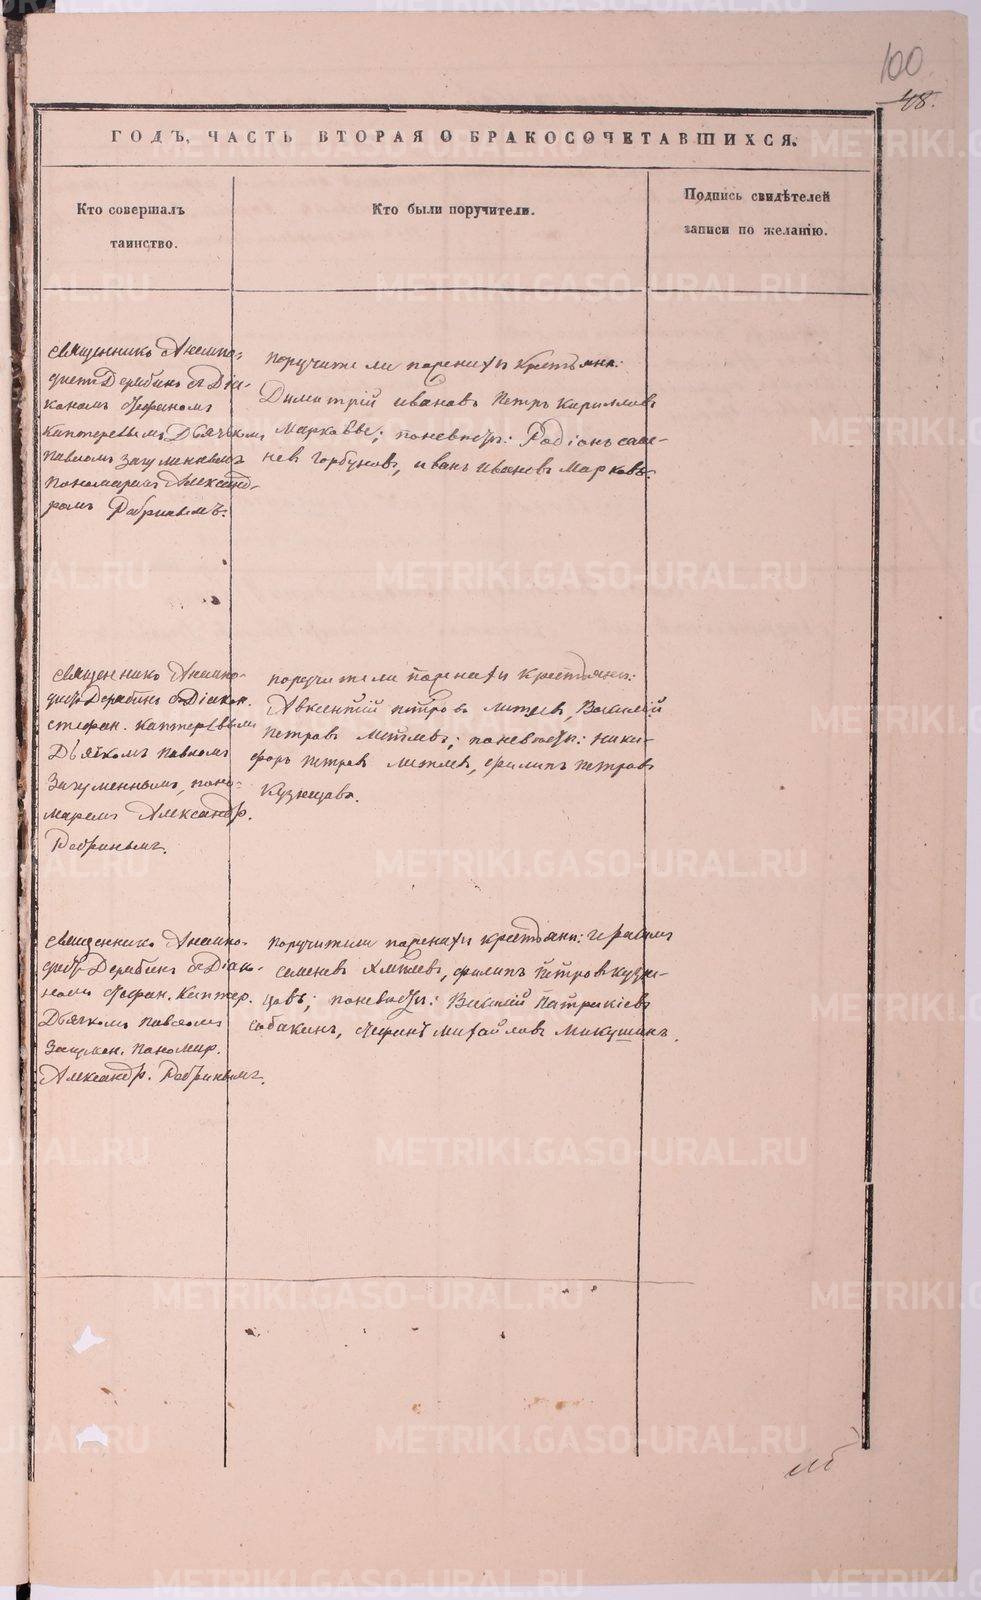 100
48.
ГОДЪ, ЧАСТЬ ВТОРАЯ О БРАКОСОЧЕТАВШИХСЯ.
Кто совершалъ
таинство.
Кто были поручители.
Подпись свидѣтелей
записи по желанію.
Священникъ
Дерябинъ съ Діа-
кономъ Стефаномъ
Каптеревымъ, Дьячкомъ
Павломъ Загуменнымъ
пономаремъ Александ-
ромъ
поручители по женихѣ крестьяне:
Димитрій Ивановъ Петръ Кирилловъ
Марковы; по невѣстѣ: Родіонъ Семе-
невъ Горбуновъ, Иванъ Ивановъ Марковъ.
Священникъ
Дерябинъ съ Діакон.
Стефан. Каптеревымъ
Дьячкомъ Павломъ
Загуменнымъ, поно-
маремъ Александр.
поручители по женихѣ крестьяне:
Авксентій Петровъ Василій
Петровъ по невѣстѣ: Ники-
форъ Петровъ Филипъ Петровъ
Кузнецовъ.
Священникъ
Дерябинъ съ Діак-
ономъ Стефан. Каптер.
Дьячкомъ Павломъ
Загумен. Пономар.
Александр.
поручители по женихѣ крестьяне: Герасимъ
Семеневъ Филипъ Петровъ Кузне-
цовъ; по невѣстѣ: Василій Патрикіевъ
Собакинъ, Стефанъ Михайловъ Микушинъ.
METRIKI.GASO-URAL.RU